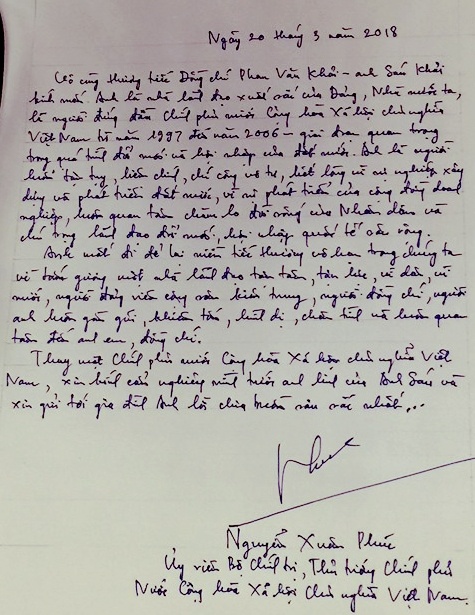 Ngày 20 tháng 3 năm 2018
Vô cùng thương tiếc Đồng chí Phan Văn Khải - anh Sáu Khải
kính mến. Anh là nhà lãnh đạo xuất sắc của Đảng, Nhà nước ta,
là người đứng đầu Chính phủ nước Cộng hòa Xã hội chủ nghĩa
Việt Nam từ năm 1997 đến năm 2006 - giai đoạn quan trọng
trong quá trình đổi mới và hội nhập của đất nước. Anh là người
luôn tận tụy, liêm chính, chí công vô tư, hết lòng vì sự nghiệp xây
dựng và phát triển đất nước, vì sự phát triển của cộng đồng doanh
nghiệp, luôn quan tâm chăm lo đời sống của Nhân dân và
chú trọng lãnh đạo đổi mới, hội nhập quốc tế sâu rộng.
Anh mất đi để lại niềm tiếc thương vô hạn trong chúng ta
về tấm gương một nhà lãnh đạo tận tâm, tận lực, vì dân, vì
nước, người đảng viên cộng sản kiên trung, người đồng chí, người
anh luôn gần gũi, khiêm tốn, bình dị, chân tình và luôn quan
tâm đến anh em, đồng chí.
Thay mặt Chính phủ nước Cộng hòa Xã hội chủ nghĩa Việt
Nam, xin kính cẩn nghiêng mình trước anh linh của Anh Sáu và
xin gửi tới gia đình Anh lời chia buồn sâu sắc nhất...
Phuc
Nguyễn Xuân Phúc
Ủy viên Bộ Chính trị, Thủ tướng Chính phủ
Nước Cộng hòa Xã hội Chủ nghĩa Việt Nam.